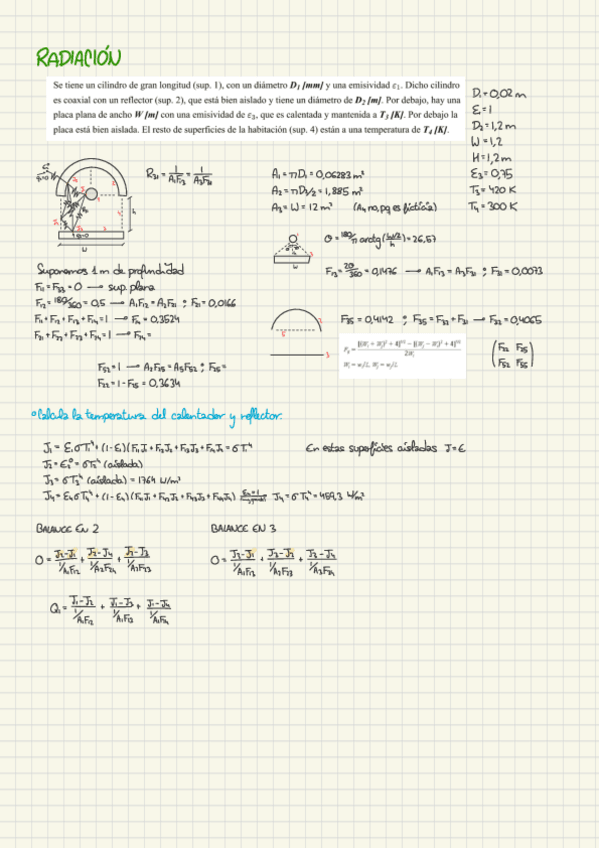 RADIACIÓN
Se tiene un cilindro de gran longitud (sup. 1), con un diámetro D₁ [mm] y una emisividad ε₁. Dicho cilindro
es coaxial con un reflector (sup. 2), que está bien aislado y tiene un diámetro de D₂ [m]. Por debajo, hay una
placa plana de ancho W [m] con una emisividad de ε₃, que es calentada y mantenida a T₃ [K]. Por debajo la
placa está bien aislada. El resto de superficies de la habitación (sup. 4) están a una temperatura de T₄ [K].
D₁ = 0,02 m
ε₁ = 1
D₂ = 1,2 m
W = 1,2
H = 1,2 m
ε₃ = 0,75
T₃ = 420 K
T₄ = 300 K
h
W
R₃₁ = 1/A₁F₁₃ = 1/A₃F₃₁
A₁ = πD₁ = 0,06283 m²
A₂ = πD₂/2 = 1,885 m²
A₃ = W = 12 m² (A₄ no, pq es ficticia)
W
θ = 180/π arctg (W/2/h) = 26,57
F₁₃ = 2θ/360 = 0,1476 → A₁F₁₃ = A₃F₃₁ ; F₃₁ = 0,0073
Suponemos 1 m de profundidad
F₁₁ = F₃₃ = 0 → sup. plana
F₁₂ = 180/360 = 0,5 → A₁F₁₂ = A₂F₂₁ ; F₂₁ = 0,0166
F₁₁ + F₁₂ + F₁₃ + F₁₄ = 1 → F₁₄ = 0,3524
F₂₁ + F₂₂ + F₂₃ + F₂₄ = 1 → F₂₄ =
F₃₅ = 0,4142 ; F₃₅ = F₃₂ + F₃₁ → F₃₂ = 0,4065
F₅₂ = 1 → A₂F₂₅ = A₅F₅₂ ; F₂₅ =
F₂₂ = 1 - F₂₅ = 0,3634
(F₂₂ F₂₅
F₅₂ F₅₅)
• Calcula la temperatura del calentador y reflector:
J₁ = ε₁σT₁⁴ + (1-ε₁)(F₁₁J₁ + F₁₂J₂ + F₁₃J₃ + F₁₄J₄ = σT₁⁴
En estas superficies aisladas J = E
J₂ = E₂⁰ = σT₂⁴ (aislada)
J₃ = σT₃⁴ (aislada) = 1764 W/m²
J₄ = ε₄σT₄⁴ + (1-ε₄)(F₄₁J₁ + F₄₂J₂ + F₄₃J₃ + F₄₄J₄) J₄ = σT₄⁴ = 459,3 W/m²
BALANCE EN 2
BALANCE EN 3
0 = J₂-J₁ / 1/A₁F₁₂ + J₂-J₄ / 1/A₂F₂₄ + J₂-J₃ / 1/A₂F₂₃
0 = J₃-J₁ / 1/A₁F₁₃ + J₃-J₂ / 1/A₂F₂₃ + J₃-J₄ / 1/A₃F₃₄
Q₁ = J₁-J₂ / 1/A₁F₁₂ + J₁-J₃ / 1/A₁F₁₃ + J₁-J₄ / 1/A₁F₁₄